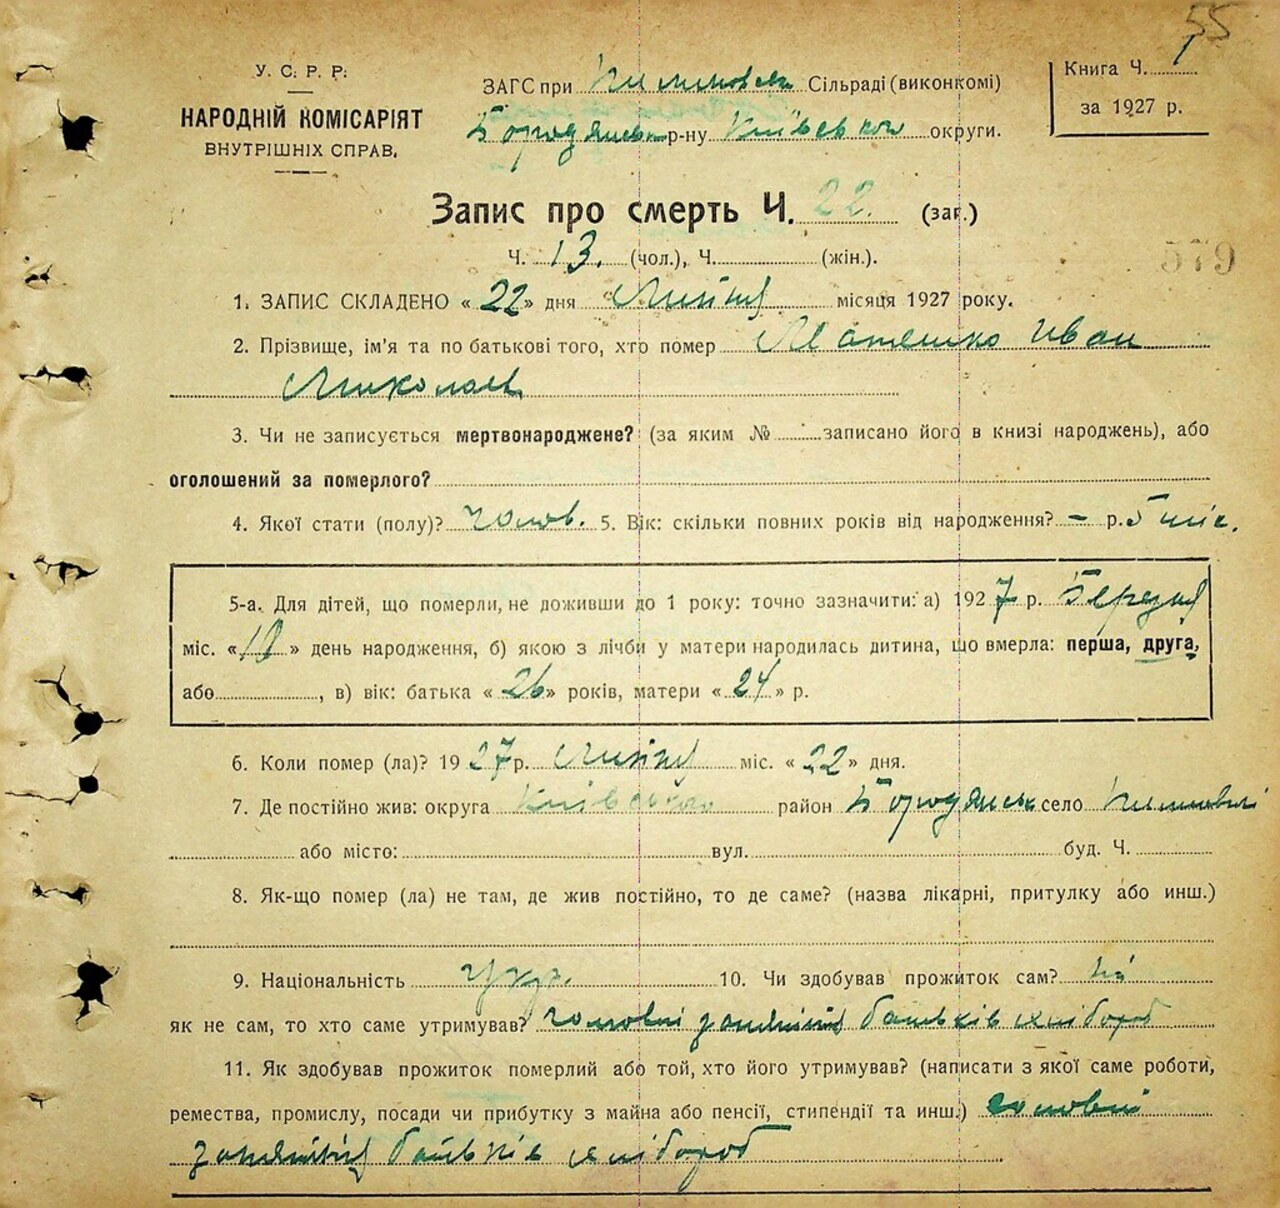 55
У. С. Р. Р.
НАРОДНІЙ КОМІСАРІЯТ
ВНУТРІШНІХ СПРАВ.
ЗАГС при Сільраді (виконкомі)
Бородянськ р-ну Київської округи.
Книга Ч. 1
за 1927 р.
Запис про смерть Ч. 22. (заг.)
Ч. 13. (чол.), Ч. (жін.).
579
1. ЗАПИС СКЛАДЕНО « 22 » дня Липня місяця 1927 року.
2. Прізвище, ім'я та по батькові того, хто помер Матяшко Иван
Миколаев
3. Чи не записується мертвонароджене? (за яким № записано його в книзі народжень), або
оголошений за померлого?
4. Якої стати (полу)? чолов. 5. Вік: скільки повних років від народження? – р. 5 міс.
5-а. Для дітей, що померли, не доживши до 1 року: точно зазначити: а) 1927 р. Березня
міс. « 10 » день народження, б) якою з лічби у матери народилась дитина, що вмерла: перша, друга,
або , в) вік: батька « 26 » років, матери « 24 » р.
6. Коли помер (ла)? 1927 р. Липня міс. « 22 » дня.
7. Де постійно жив: округа Київська район Бородянськ село
або місто: вул. буд. Ч.
8. Як-що помер (ла) не там, де жив постійно, то де саме? (назва лікарні, притулку або инш.)
9. Національність укр. 10. Чи здобував прожиток сам? ні
як не сам, то хто саме утримував? головні заняття батьків хлібороб
11. Як здобував прожиток померлий або той, хто його утримував? (написати з якої саме роботи,
ремества, промислу, посади чи прибутку з майна або пенсії, стипендії та инш.) головні
заняття батьків хлібороб